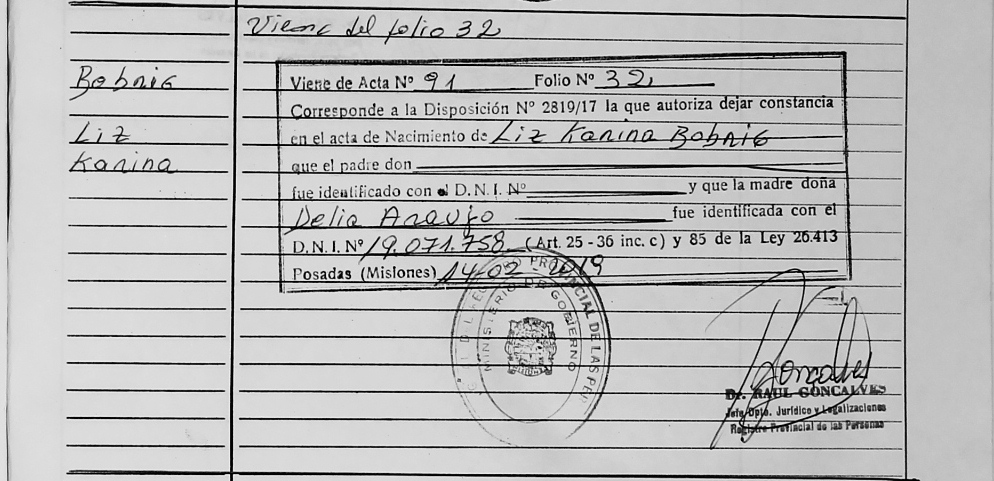 Viene del folio 32
Bobnis
Liz
Karina
Viene de Acta Nº 91 Folio Nº 32
Corresponde a la Disposición Nº 2819/17 la que autoriza dejar constancia
en el acta de Nacimiento de Liz Karina Bobnis
que el padre don
fue identificado con el D.N.I. Nº y que la madre doña
Delia Araujo fue identificada con el
D.N.I. Nº 19.071.758 (Art. 25 - 36 inc. c) y 85 de la Ley 26.413
Posadas (Misiones) 14-02-2019
PROVINCIAL DE LAS PER
MINISTERIO DE GOBIERNO
Dr. RAUL GONCALVES
Jefe Dpto. Jurídico y Legalizaciones
Registro Provincial de las Personas